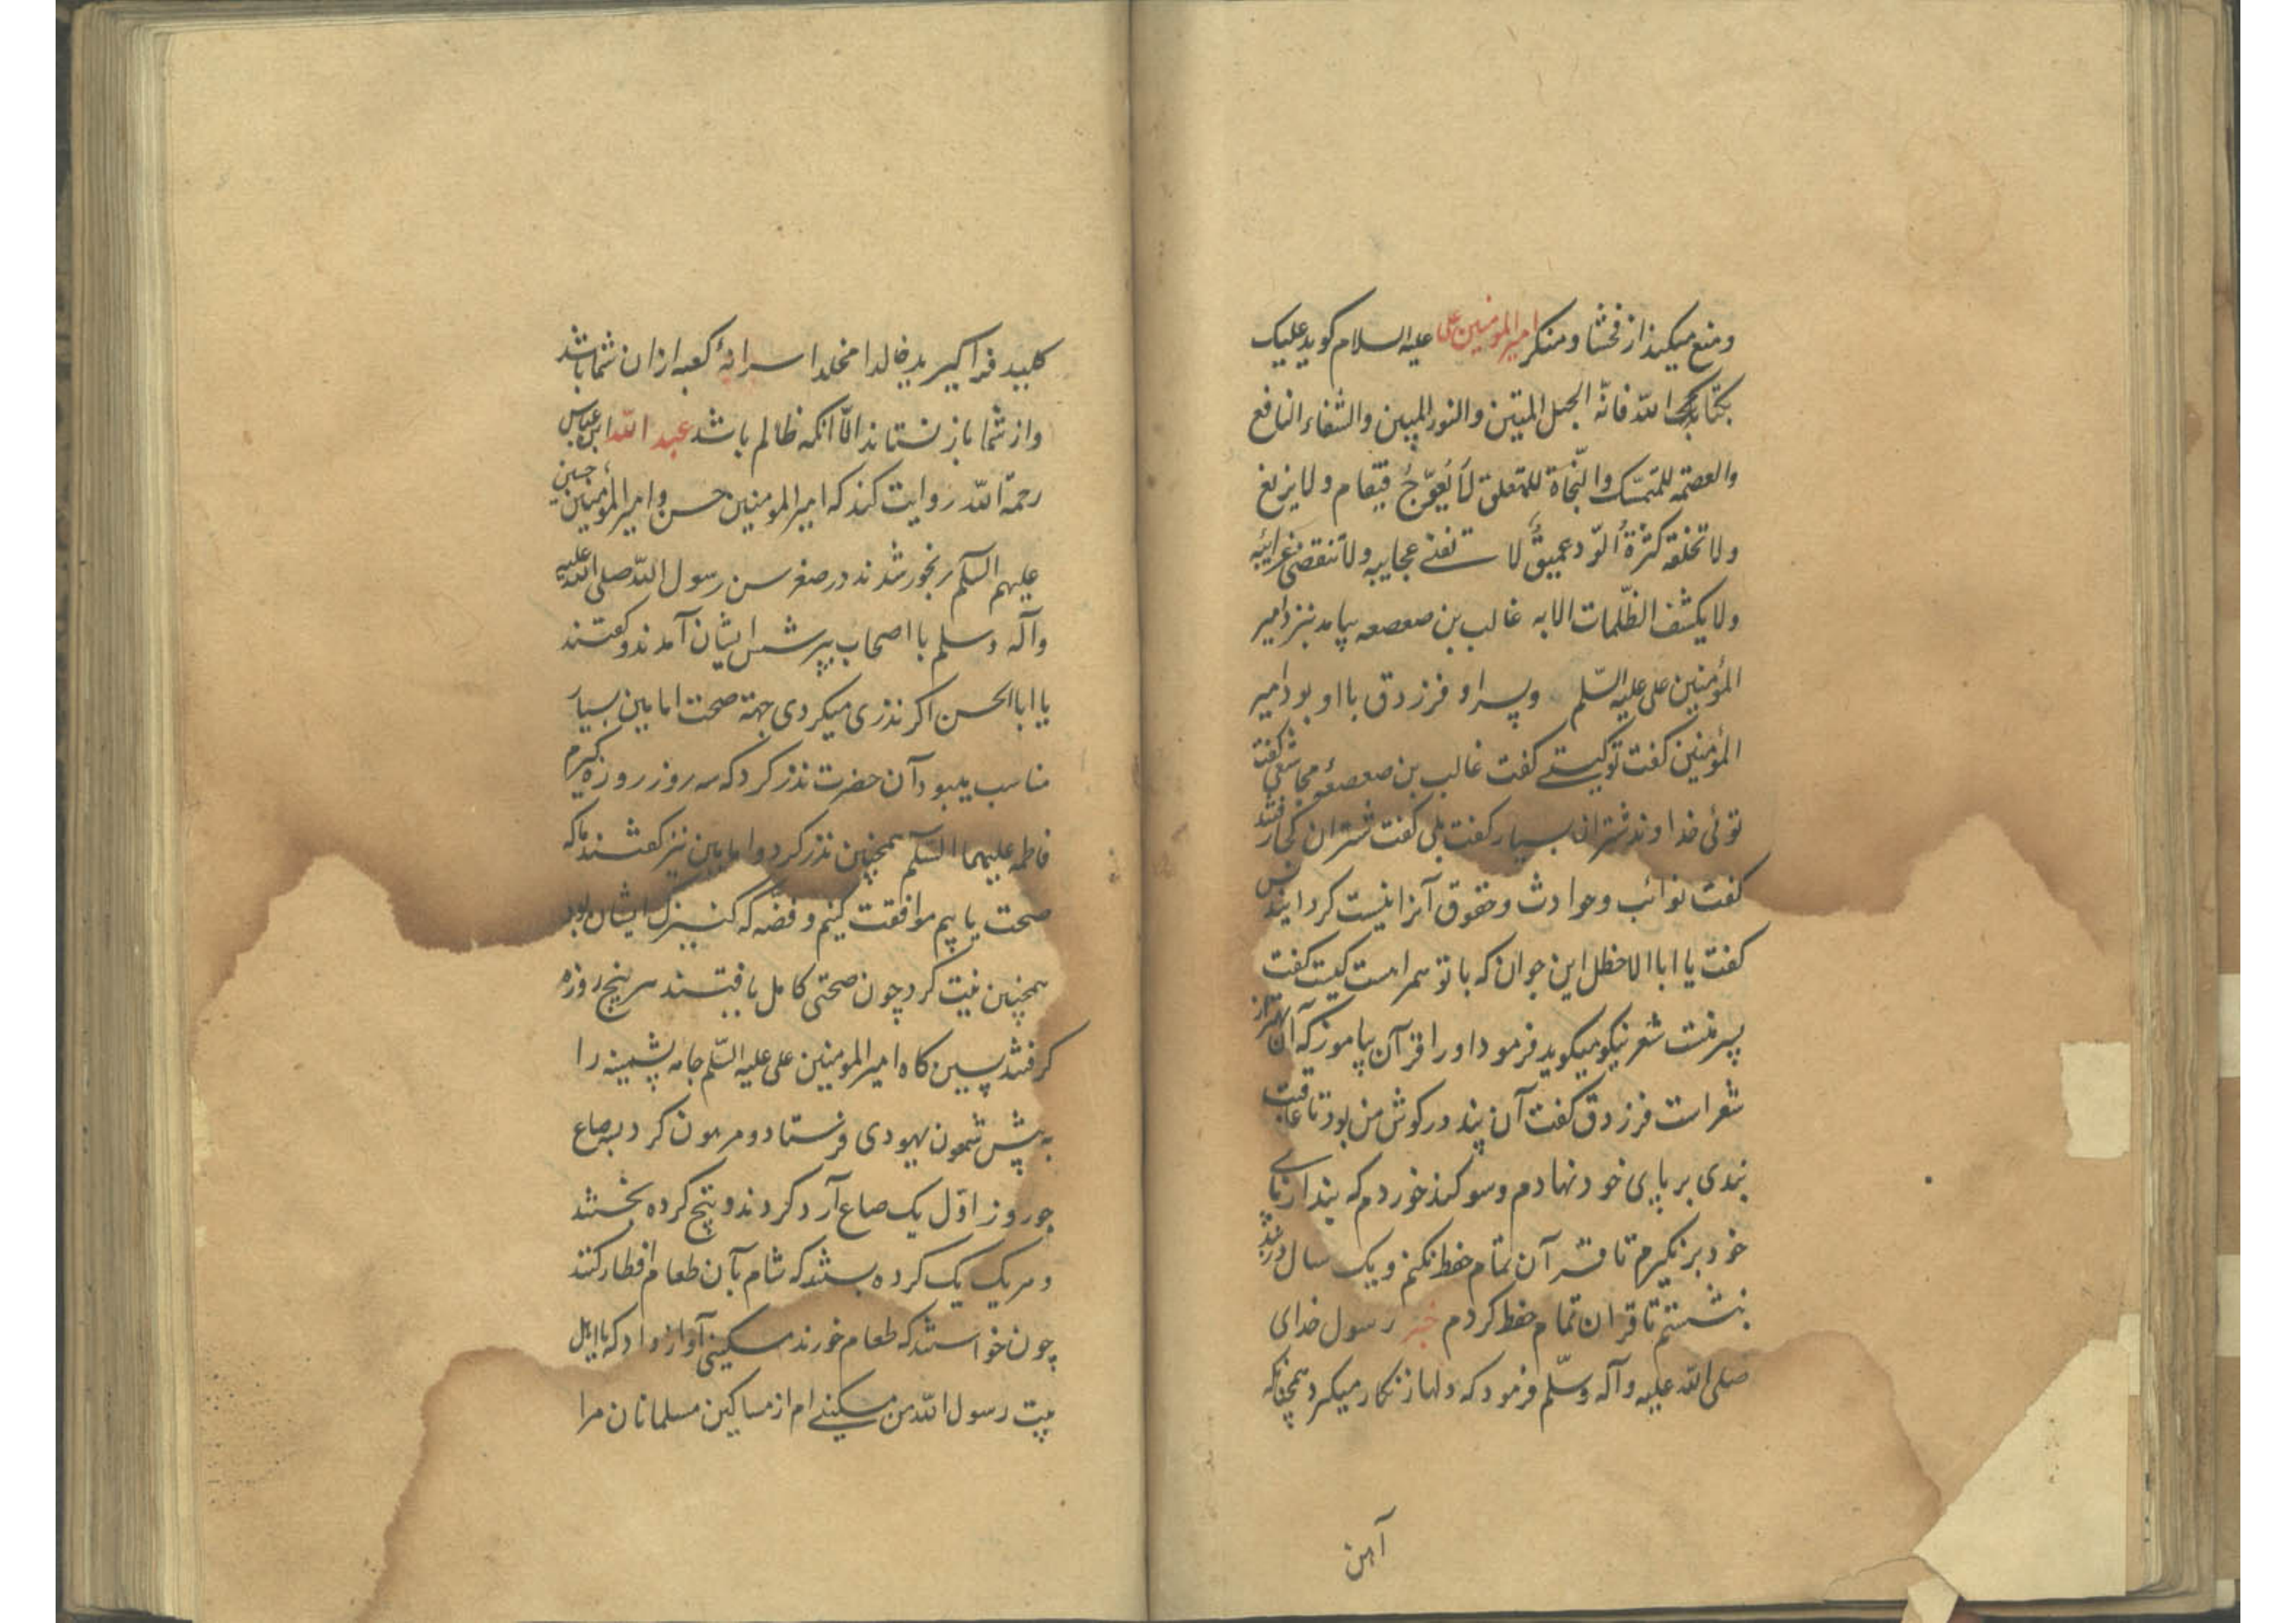 ومنع میکند از فحشا ومنکر امیر المومنین علی علیه السلام کوید علیک
بکتاب الله فانّه الحبل المتین والنور المبین والشفاء النافع
والعصمة للمتمسّک والنّجاة للمتعلق لا یُعوّجُ فیقام ولا یزیغ
ولا تخلقه کثرةُ الرّد عمیقٌ لا تفنی عجایبه ولا تنقضی غرائبه
ولا یکشف الظّلمات الا به غالب بن صعصعه بیامد بنزد امیر
المؤمنین علی علیه السّلم وپسر او فرزدق با او بود امیر
المؤمنین کفت تو کیستی کفت غالب بن صعصعهٔ مجاشعی کفت
توئی خداوند شتران بسیار کفت بلی کفت شتران کجا رفتند
کفت نوائب وحوادث وحقوق آنرا نیست کردانیدند
کفت یا ابا الاخطل این جوان که با تو همراهست کیست کفت
پسر منست شعر نیکو میکوید فرمود اورا قرآن بیاموز که آن بهتر از
شعر است فرزدق کفت آن پند در کوش من بود تا عاقبت
بندی بر پای خود نهادم وسوکند خوردم که بند از پای
خود برنکیرم تا قرآن تمام حفظ نکنم ویک سال در بند
بنشستم تا قران تمام حفظ کردم خبر رسول خدای
صلی الله علیه وآله وسلّم فرمود که دلها زنکار میکیرد همچنانکه
آهن
کلید فرا کیرید خالدا مخلدا سدانهٔ کعبه ازان شما باشد
واز شما باز نستاند الّا انکه ظالم باشد عبد الله ابن عباس
رحمة الله روایت کند که امیر المومنین حسن وامیر المؤمنین حسین
علیهم السلم رنجور شدند در صغر سن رسول الله صلی الله علیه
وآله وسلم با اصحاب بپرسش ایشان آمدند وکفتند
یا ابا الحسن اکر نذری میکردی جهة صحت امامین بسیار
مناسب میبود آن حضرت نذر کرد که سه روز روزه کیرم
فاطمه علیها السّلم همچنین نذر کرد وامامین نیز کفتند ما که
صحت یابیم موافقت کنیم وفضّه که کنیزک ایشان بود
همچنین نیت کرد چون صحتی کامل یافتند هر پنج روزه
کرفتند پسین کاه امیر المومنین علی علیه السّلم جامه پشمینه را
به پیش شمعون یهودی فرستاد ومرهون کرد بسه صاع
جو روز اوّل یک صاع آرد کردند وپنج کرده پختند
وهریک یک کرده بستد که شام بآن طعام افطار کنند
چون خواستند که طعام خورند مسکینی آواز داد که یا اهل
بیت رسول الله من مسکینی ام از مساکین مسلمانان مرا